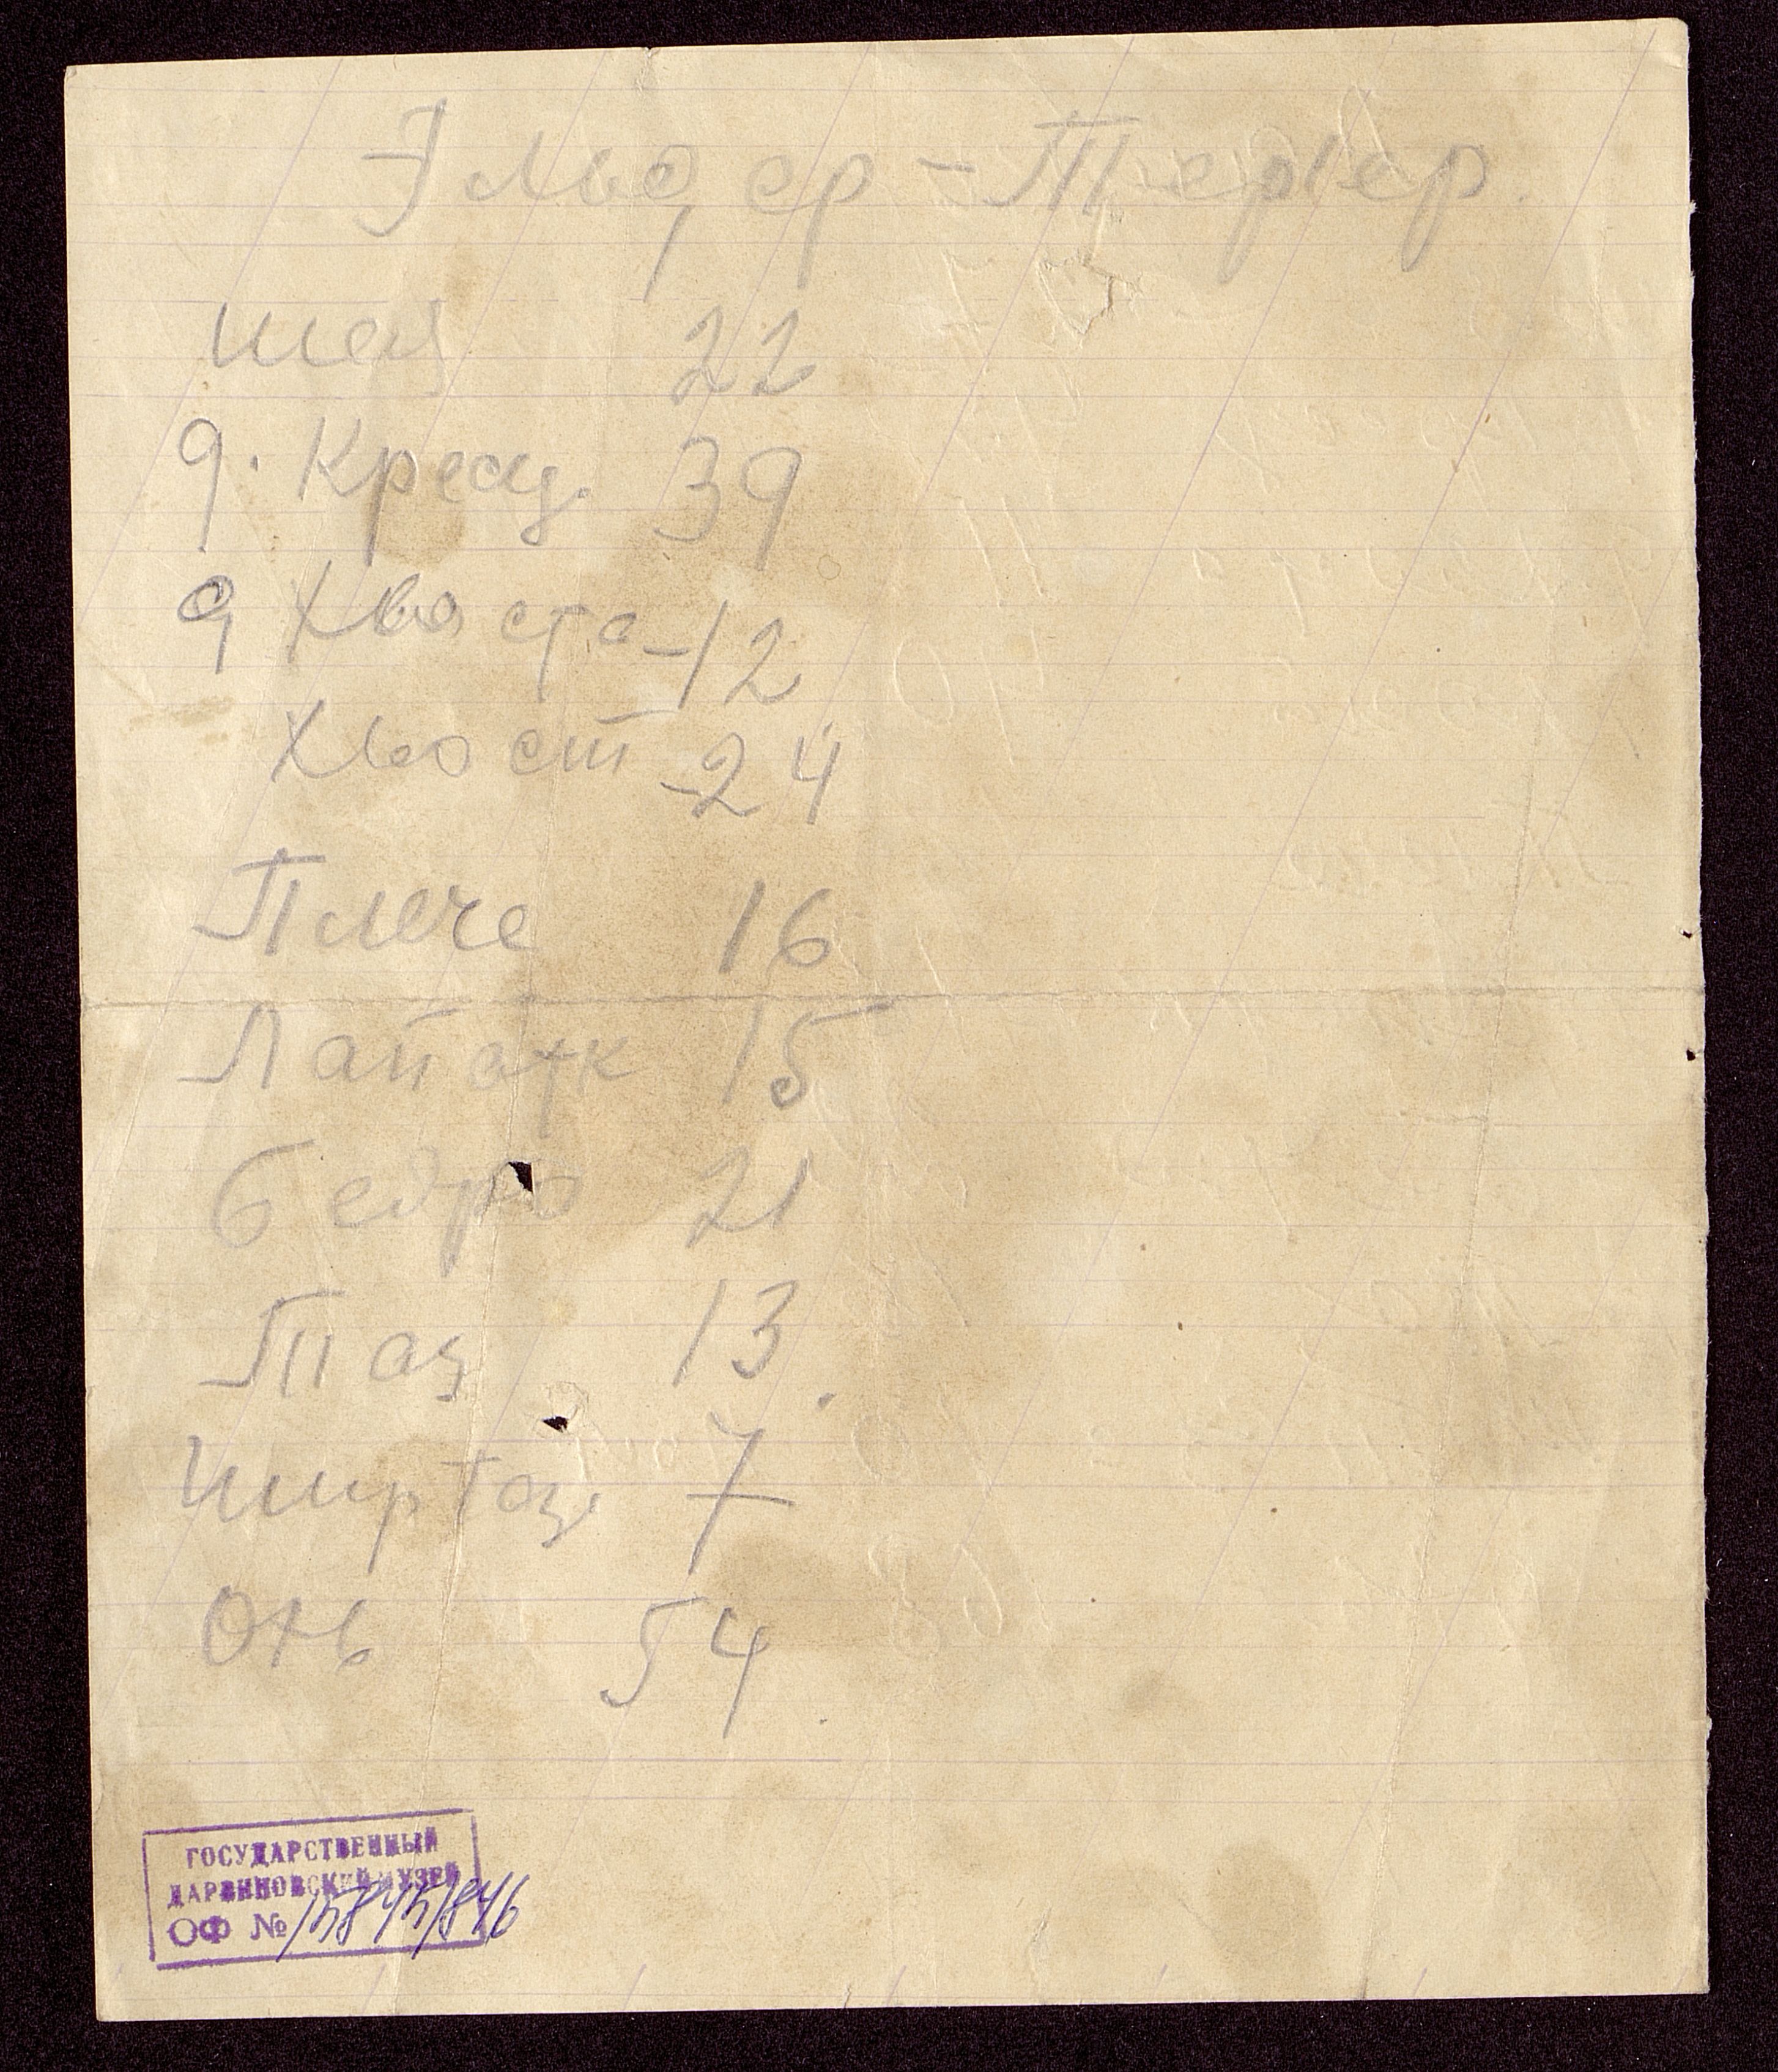 Эльдер-Терьер.
шея 22
д. Крестц. 39
д Хвоста - 12
Хвост - 24
Плече 16
Лапатк 15
бедро 21
Таз 13.
Шир Таз. 7
ОКЬ 54
ГОСУДАРСТВЕННЫЙ
ДАРВИНОВСКИЙ МУЗЕЙ
ОФ № 15845/846